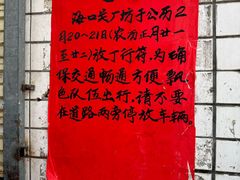 海口关厂坊于公历2
月20～21日(农历正月廿一
至廿二)放丁行符,为确
保交通畅通方便飘
色队伍出行,请不要
在道路两旁停放车辆.